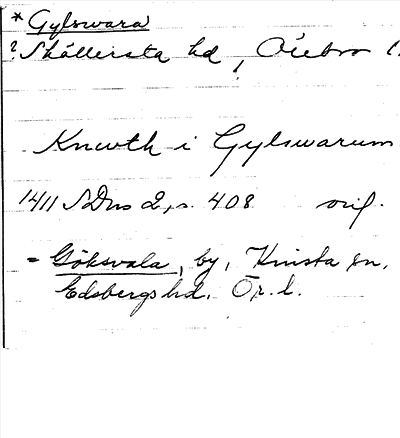 * Gylswara
? Skållersta hd, Örebro l.
Knwth i Gylswarum
1411 SDns 2, s. 408 orig.
= Göksvala, by, Knista sn,
Edsbergs hd. Ör. l.